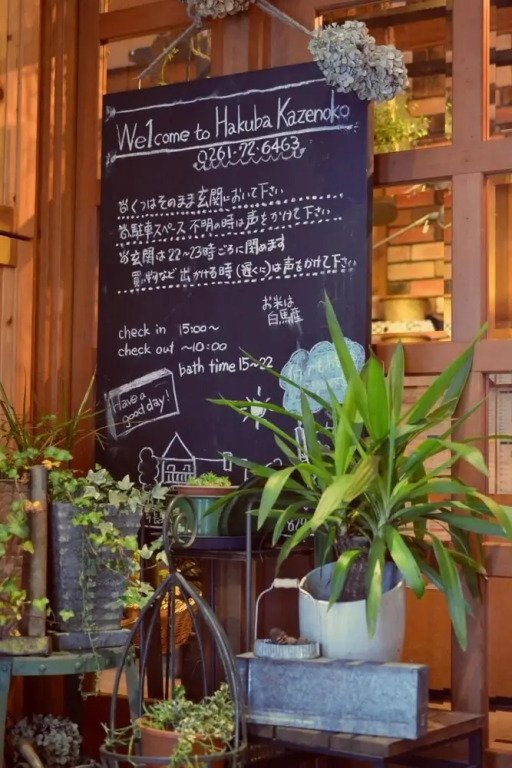 We1come to Hakuba Kazenoko
0261-72-6463
☆くつはそのまま玄関において下さい
☆駐車スペース不明の時は声をかけて下さい
☆玄関は22〜23時ごろに閉めます
買い物など出かける時(遅くに)は声をかけて下さい
お米は
白馬産
check in 15:00〜
check out 〜10:00
bath time 15〜22
Have a
good day!